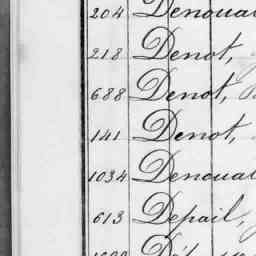 204 Denoual
218 Denot,
688 Denot,
141 Denot,
1034 Denoual
613 Depail,